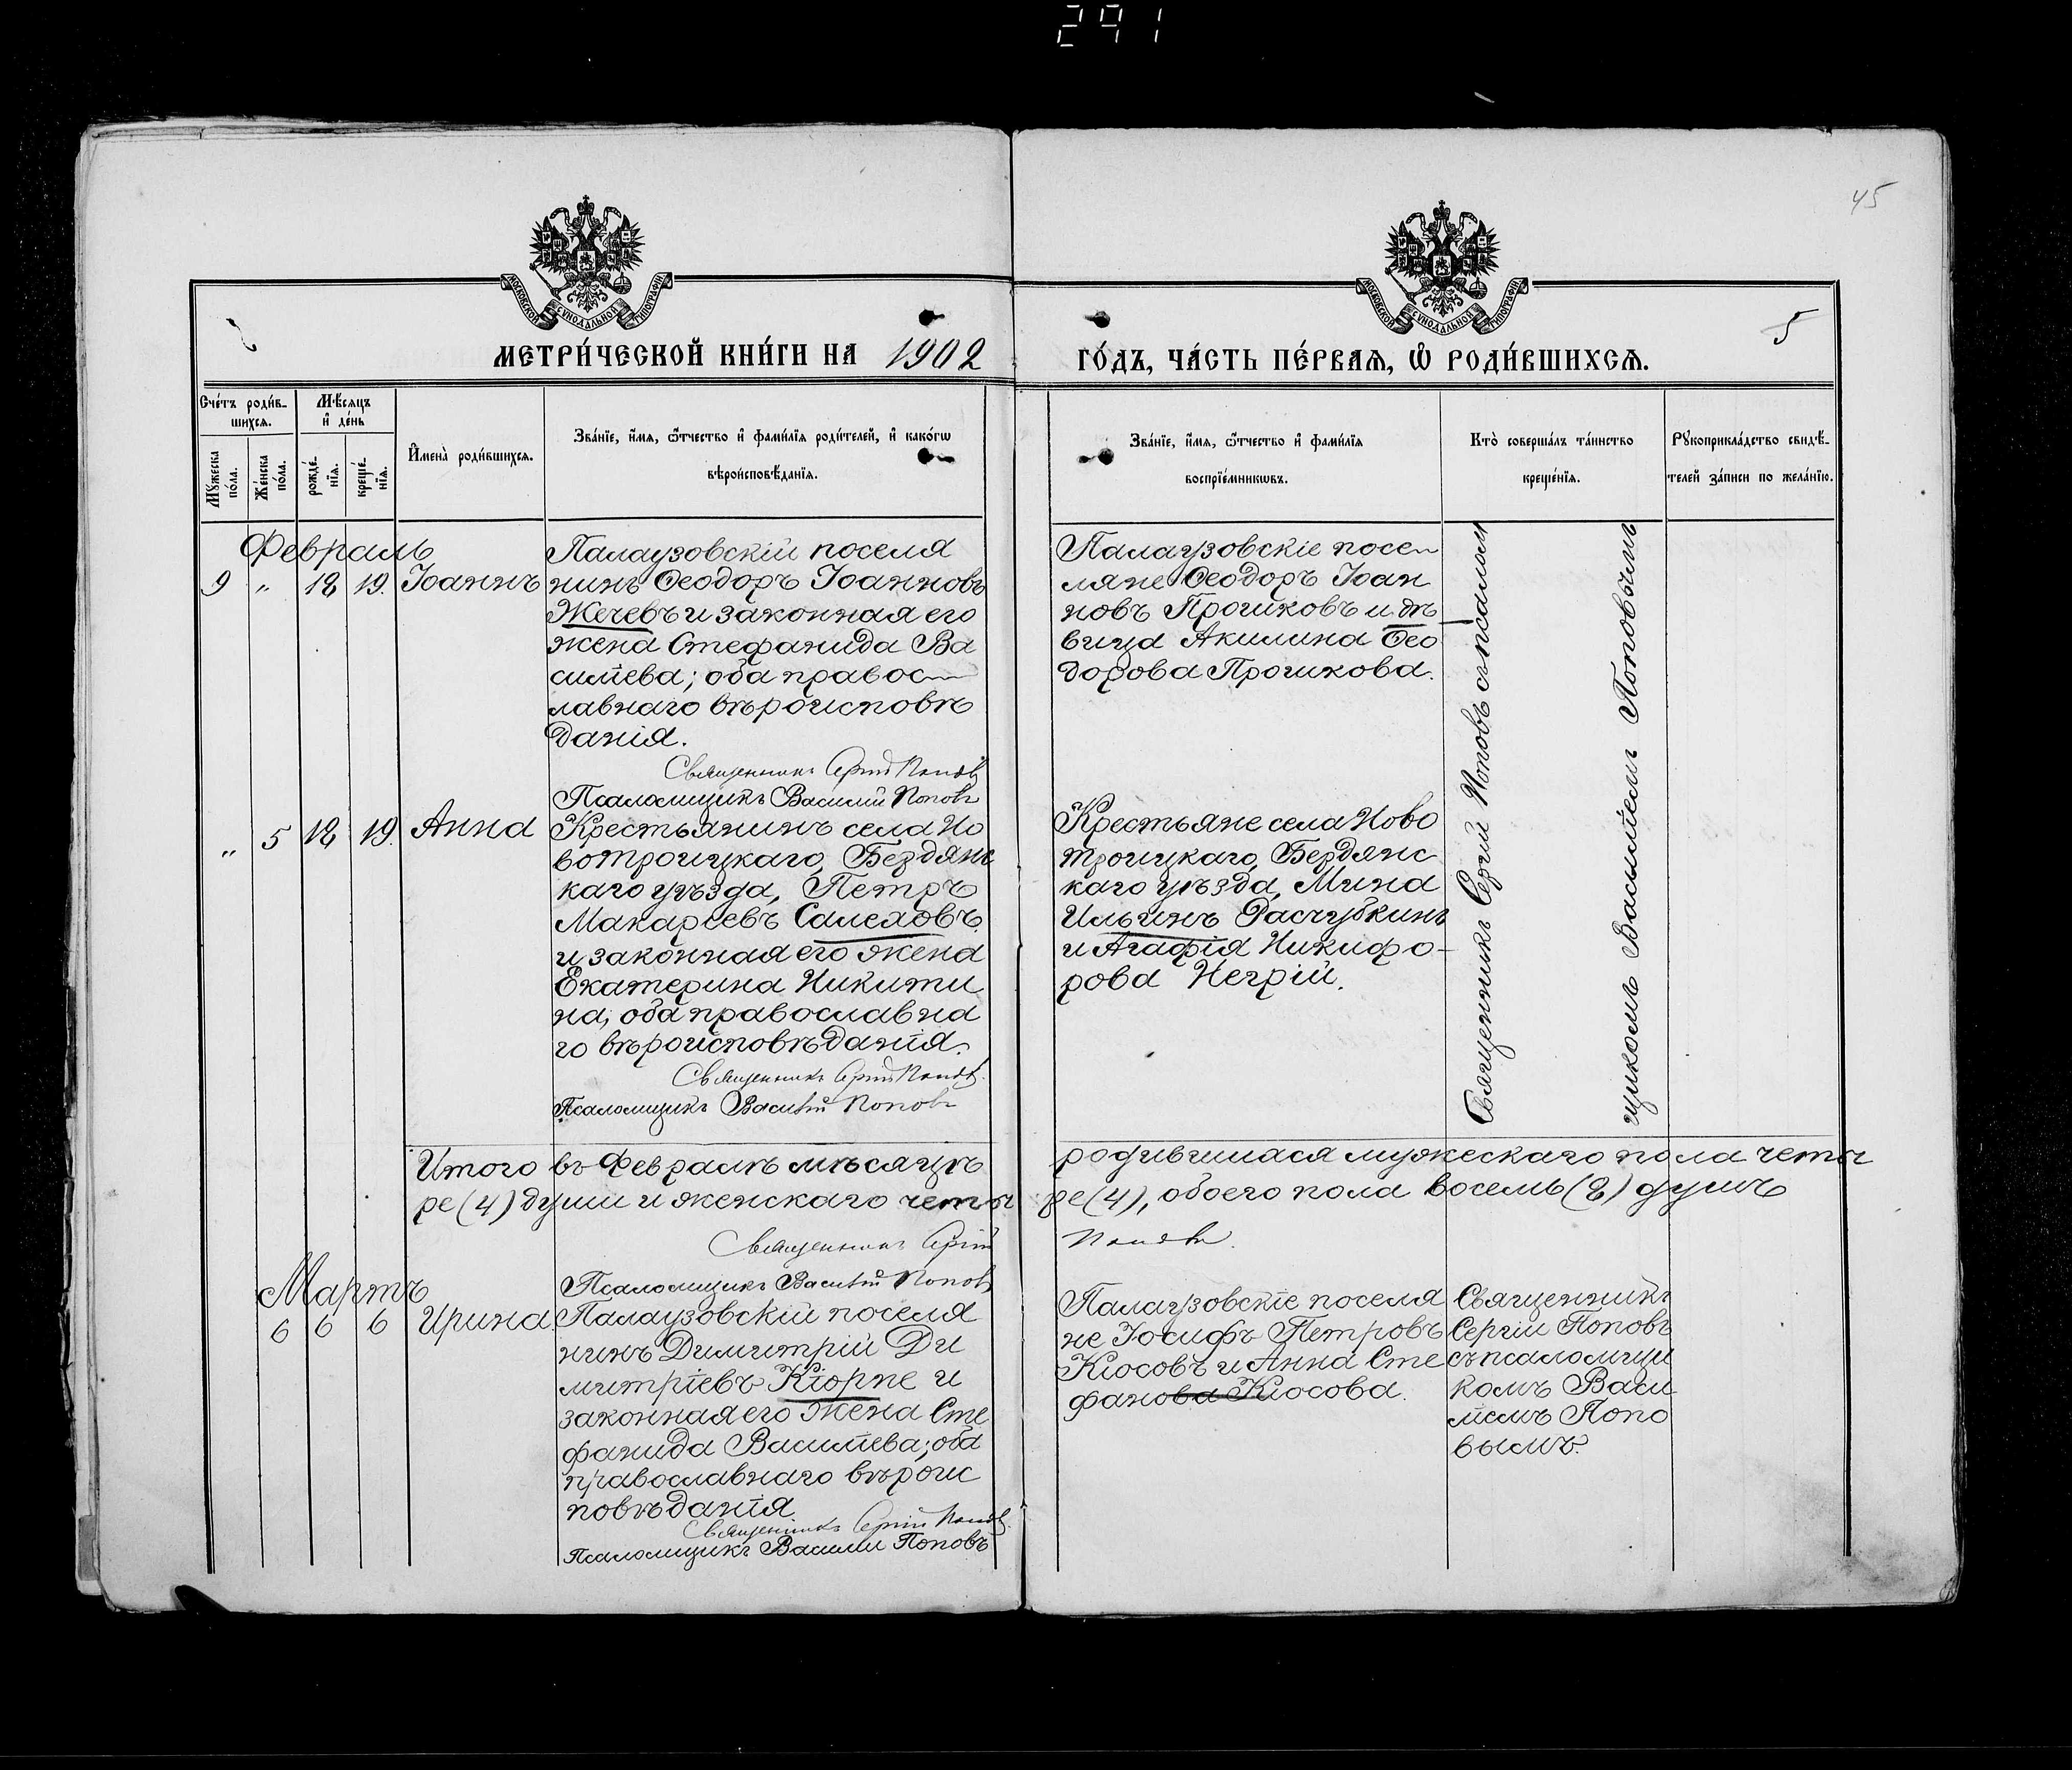 291
45
МОСКОВСКОЙ СѴНОДАЛЬНОЙ ТИПОГРАФІИ
МОСКОВСКОЙ СѴНОДАЛЬНОЙ ТИПОГРАФІИ
5
МЕТРИ́ЧЕСКОЙ КНИ́ГИ НА 1902
ГО́ДЪ, ЧА́СТЬ ПЕ́РВАЯ, Ѽ РОДИ́ВШИХСѦ.
Сче́тъ роди́в-
шихся.
Мѣ́сяцъ
и҆ де́нь
Мꙋжеска
по́ла.
Же́нска
по́ла.
рожде́-
нїя.
креще́-
нїя.
И҆мена̀ роди́вшихся.
Зва́нїе, и҆́мя, ѻ҆́тчество и҆ фами́лїя роди́телей, и҆ како́гѡ
вѣроисповѣ́данїя.
Зва́нїе, и҆́мя, ѻ҆́тчество и҆ фами́лїя
воспрїе́мникѡвъ.
Кто̀ соверша́лъ та́инство
креще́нїя.
Рꙋкоприкла́дство свидѣ́-
телей за́писи по жела́нїю.
Февраль
9 " 18 19. Іоаннъ
Палаузовскій поселя
нинъ Ѳеодоръ Іоанновъ
Жечевъ и законная его
жена Стефанида Ва
сильева; оба правос
лавнаго вѣроисповѣ
данія.
Священникъ Сергій Поповъ
Псаломщикъ Василій Поповъ
Палаузовскіе посе
ляне Ѳеодоръ Іоан
новъ Прошковъ и дѣ
вица Акилина Ѳео
дорова Прошкова.
Священникъ Сергій Поповъ съ псалом
щикомъ Василіемъ Поповымъ
" 5 18 19. Анна
Крестьянинъ села Но
вотроицкаго, Бердянс
каго уѣзда, Петръ
Макарьевъ Салеховъ
и законная его жена
Екатерина Никити
на, оба православна
го вѣроисповѣданія.
Священникъ Сергій Поповъ.
Псаломщикъ Василій Поповъ
Крестьяне села Ново
троицкаго, Бердянс
каго уѣзда, Мина
Ильинъ Расчубкинъ
и Агафія Никифо-
рова Негрій.
Итого въ Февралѣ мѣсяцѣ родившихся мужескаго пола четы
ре (4) души и женскаго четы ре (4), обоего пола восемь (8) душъ
Священникъ Сергій Поповъ.
Псаломщикъ Василій Поповъ
Мартъ
6 6 6 Ирина.
Палаузовскій поселя
нинъ Димитрій Ди
митріевъ Кіорпе и
законная его жена Сте
фанида Васильева; оба
православнаго вѣроис
повѣданія
Священникъ Сергій Поповъ.
Псаломщикъ Василій Поповъ
Палаузовскіе поселя
не Іосифъ Петровъ
Кіосовъ и Анна Сте
фанова Кіосова.
Священникъ
Сергій Поповъ
съ псаломщи
комъ Васи
ліемъ Попо
вымъ.